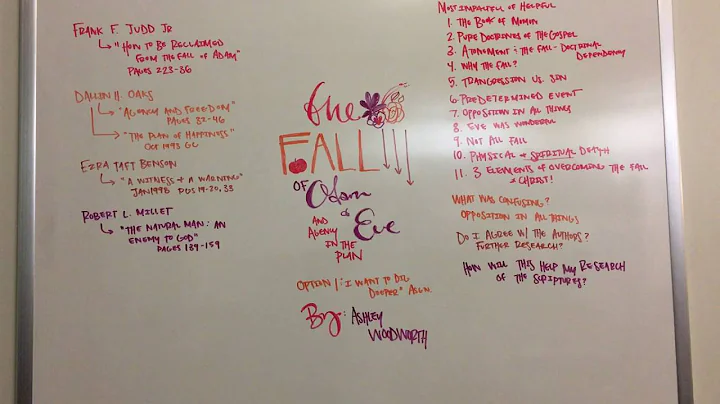 FRANK F. JUDD JR
"HOW TO BE RECLAIMED
FROM THE FALL OF ADAM"
PAGES 223-86
DALLIN H. OAKS
"AGENCY AND FREEDOM"
PAGES 32-46
"THE PLAN OF HAPPINESS"
OCT 1993 GC
EZRA TAFT BENSON
"A WITNESS & A WARNING"
PGS 19-20, 33
ROBERT L. MILLET
"THE NATURAL MAN: AN
ENEMY TO GOD"
PAGES 139-159
the
FALL
OF Adam
& Eve
AND
AGENCY
IN THE
PLAN
OPTION 1: "I WANT TO DIG
DEEPER" ASGN.
By: ASHLEY
WOODWORTH
MOST IMPACTFUL OF HELPFUL
1. THE BOOK OF MORMON
2. PURE DOCTRINES OF THE GOSPEL
3. ATONEMENT & THE FALL - DOCTRINAL
DEPENDENCY
4. WHY THE FALL?
5. TRANGRESSION VS. SIN
6. PREDETERMINED EVENT
7. OPPOSITION IN ALL THINGS
8. EVE WAS WONDERFUL
9. NOT ALL FALL
10. PHYSICAL & SPIRITUAL DEATH
11. 3 ELEMENTS OF OVERCOMING THE FALL
CHRIST!
WHAT WAS CONFUSING?
OPPOSITION IN ALL THINGS
DO I AGREE W/ THE AUTHORS?
FURTHER RESEARCH?
HOW WILL THIS HELP MY RESEARCH
OF THE SCRIPTURES?